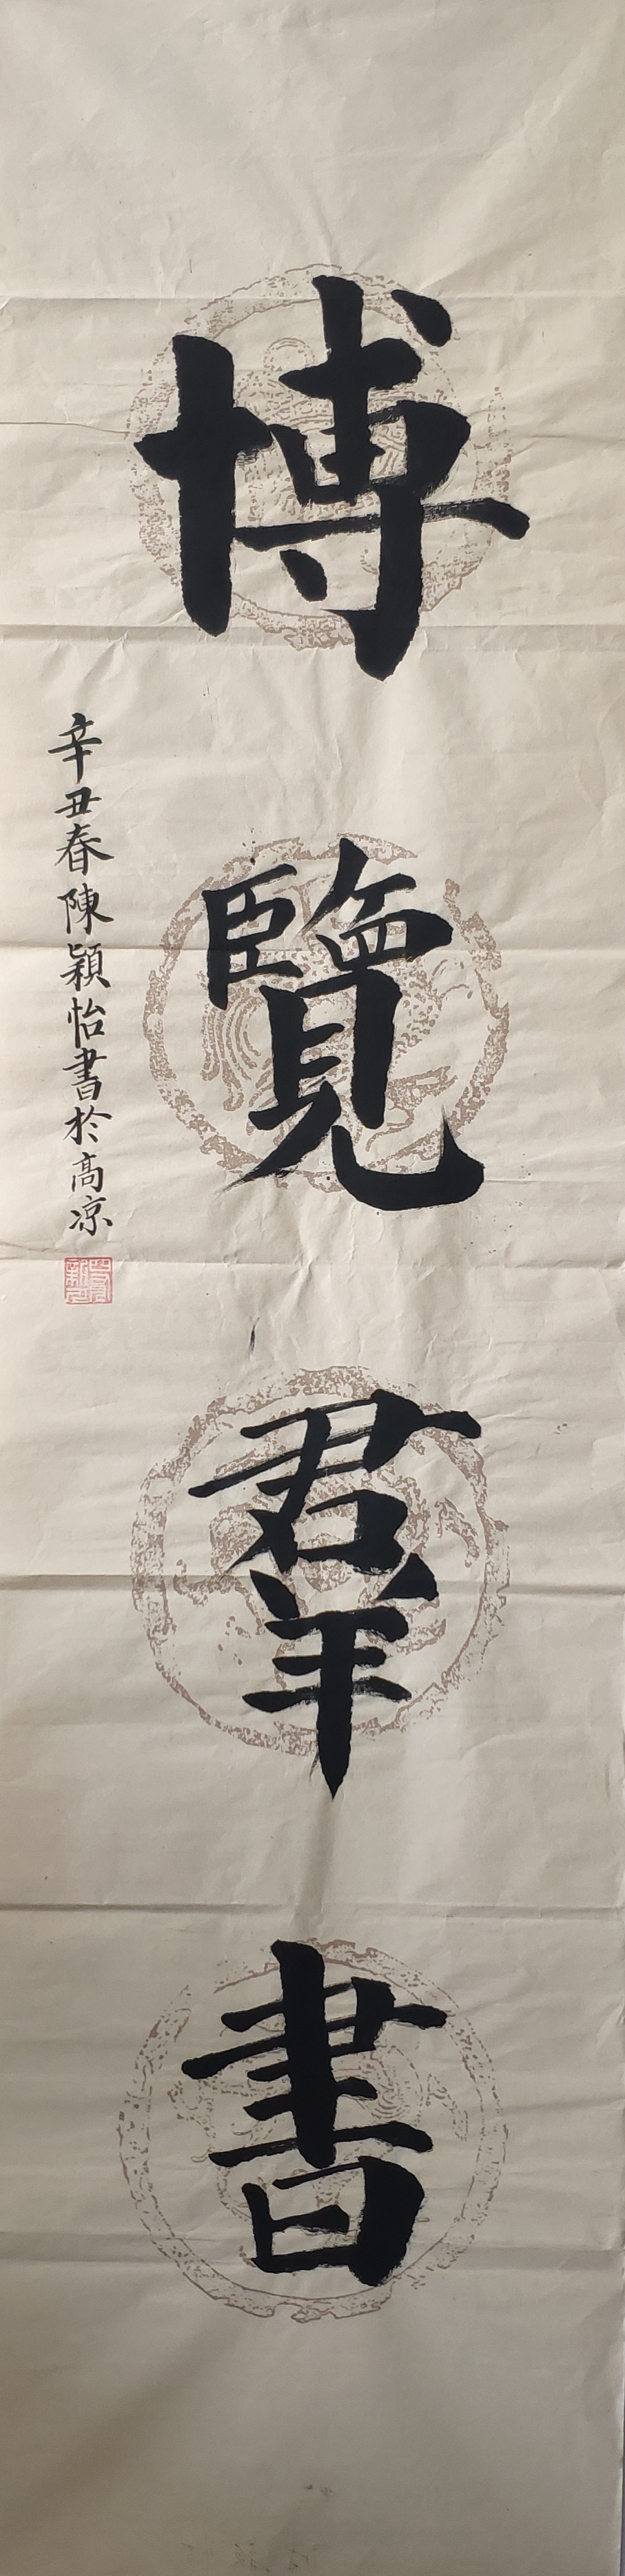 博覽羣書
辛丑春陳穎怡書於高凉